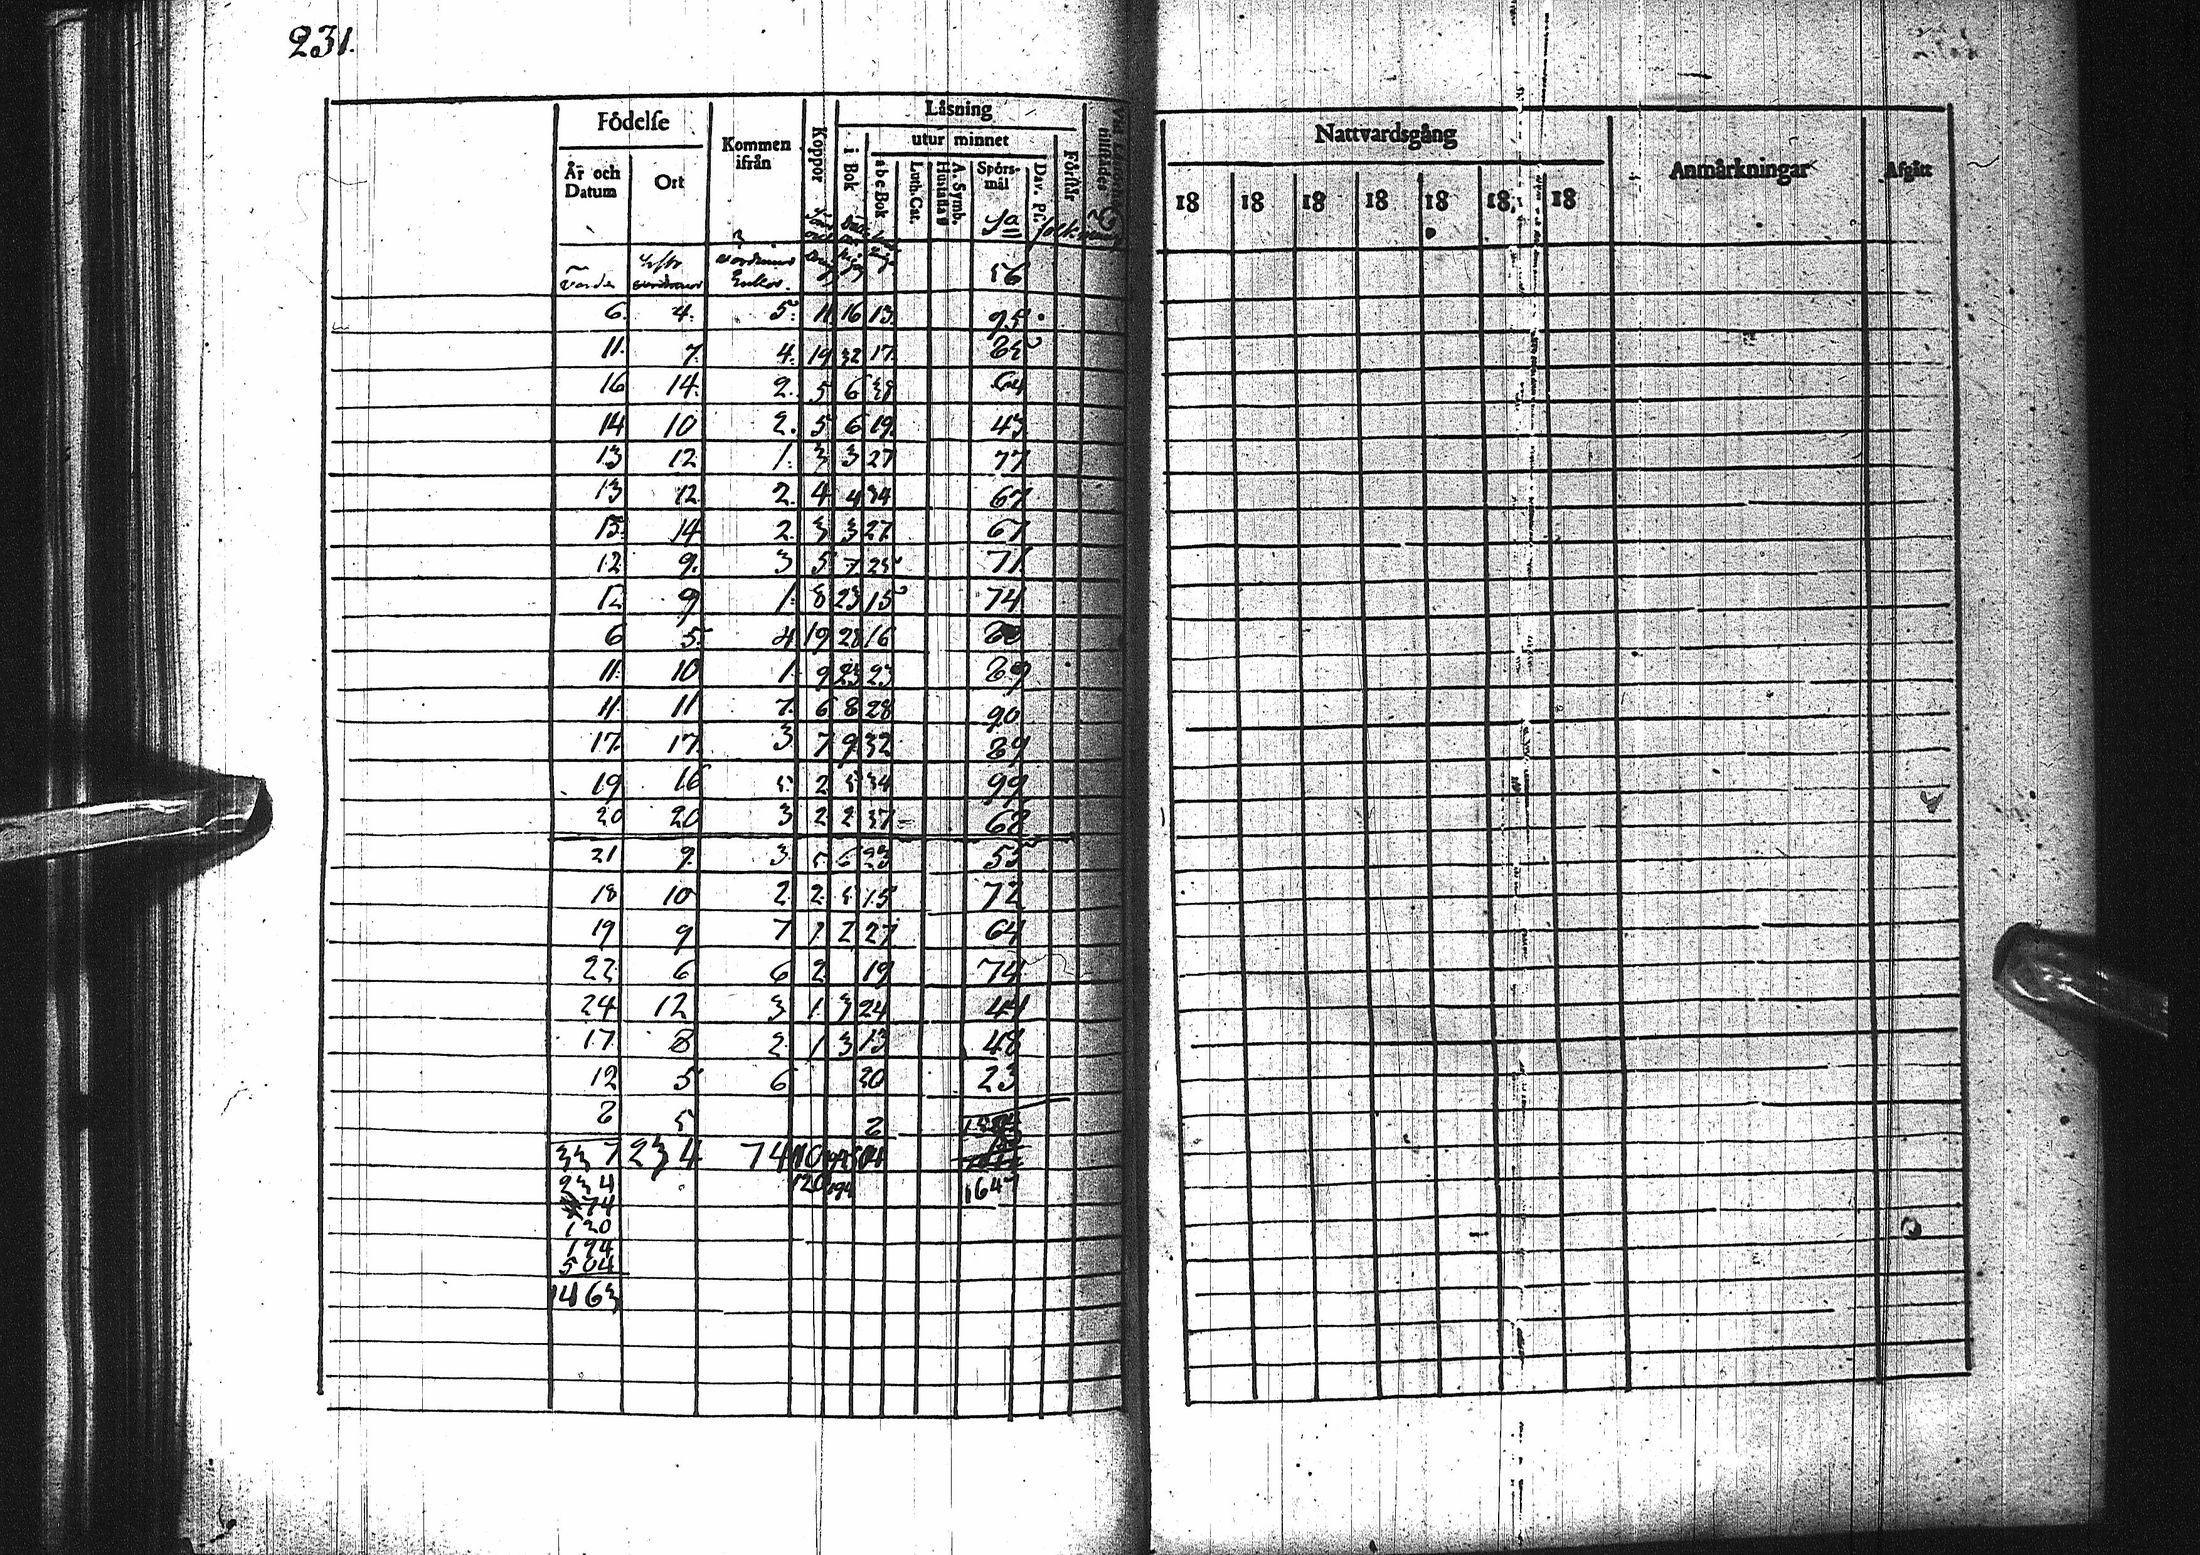 231.
Födelse Kommen ifrån Koppor Läsning Nattvardsgång Anmärkningar Afgått
i Bok utur minnet Förstår
År och Datum Ort a b c-Bok Luth. Cat. Hustafla A. Symb. Spörsmål Dav. Ps. 18 18 18 18 18 18 18
Sa
56
6. 4. 5. 11 16 13. 95
11. 7. 4. 19 32 17.
16 14. 2. 5 6 38 64
14 10 2. 5 6 19. 43
13 12 1. 3 3 27 77
13 12 2. 4 4 34 67
15. 14 2. 3 3 27. 67
12 9. 3 5 7 25 71
12 9 1. 8 23 15 74
6 5. 4 19 28 16
11. 10 1. 9 23 23 89
11 11 7. 6 8 28 90
17. 17. 3 7 9 32 89
19 16 5 2 5 34 99
20 20 3 2 2 37 68
21 9. 3 5 6 23 53
18 10 2 2. 5 15 72
19 9 7 1 2 27 64
22 6 6 2 19 74
24 12 3 1 3 24 44
17. 8 2 1 3 13 48
12 5 6 30 23
8 5 2
337 234 74 110
234 120 194 1647
74
120
194
504
1463